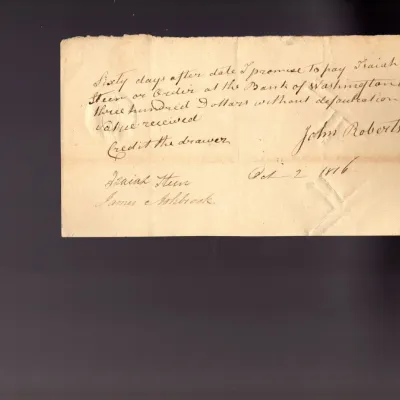 Sixty days after date I promise to pay Isaiah
Steen or Order at the Bank of Washington
three hundred Dollars without defalcation
value received
Credit the drawer
John Roberts
Isaiah Steen
Oct 2 1816
James